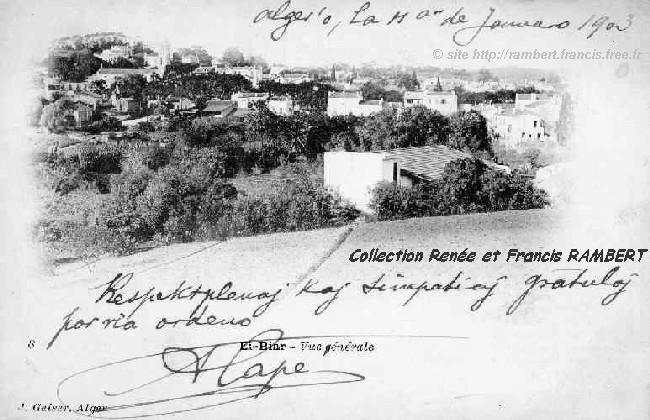 Alger'o, la 11an de Januaro 1903
© site http://rambert.francis.free.fr
Collection Renée et Francis RAMBERT
Respektplenaj kaj simpatiaj gratuloj
por via ordeno
8 El-Biar - Vue générale
A Cape
J. Geiser, Alger